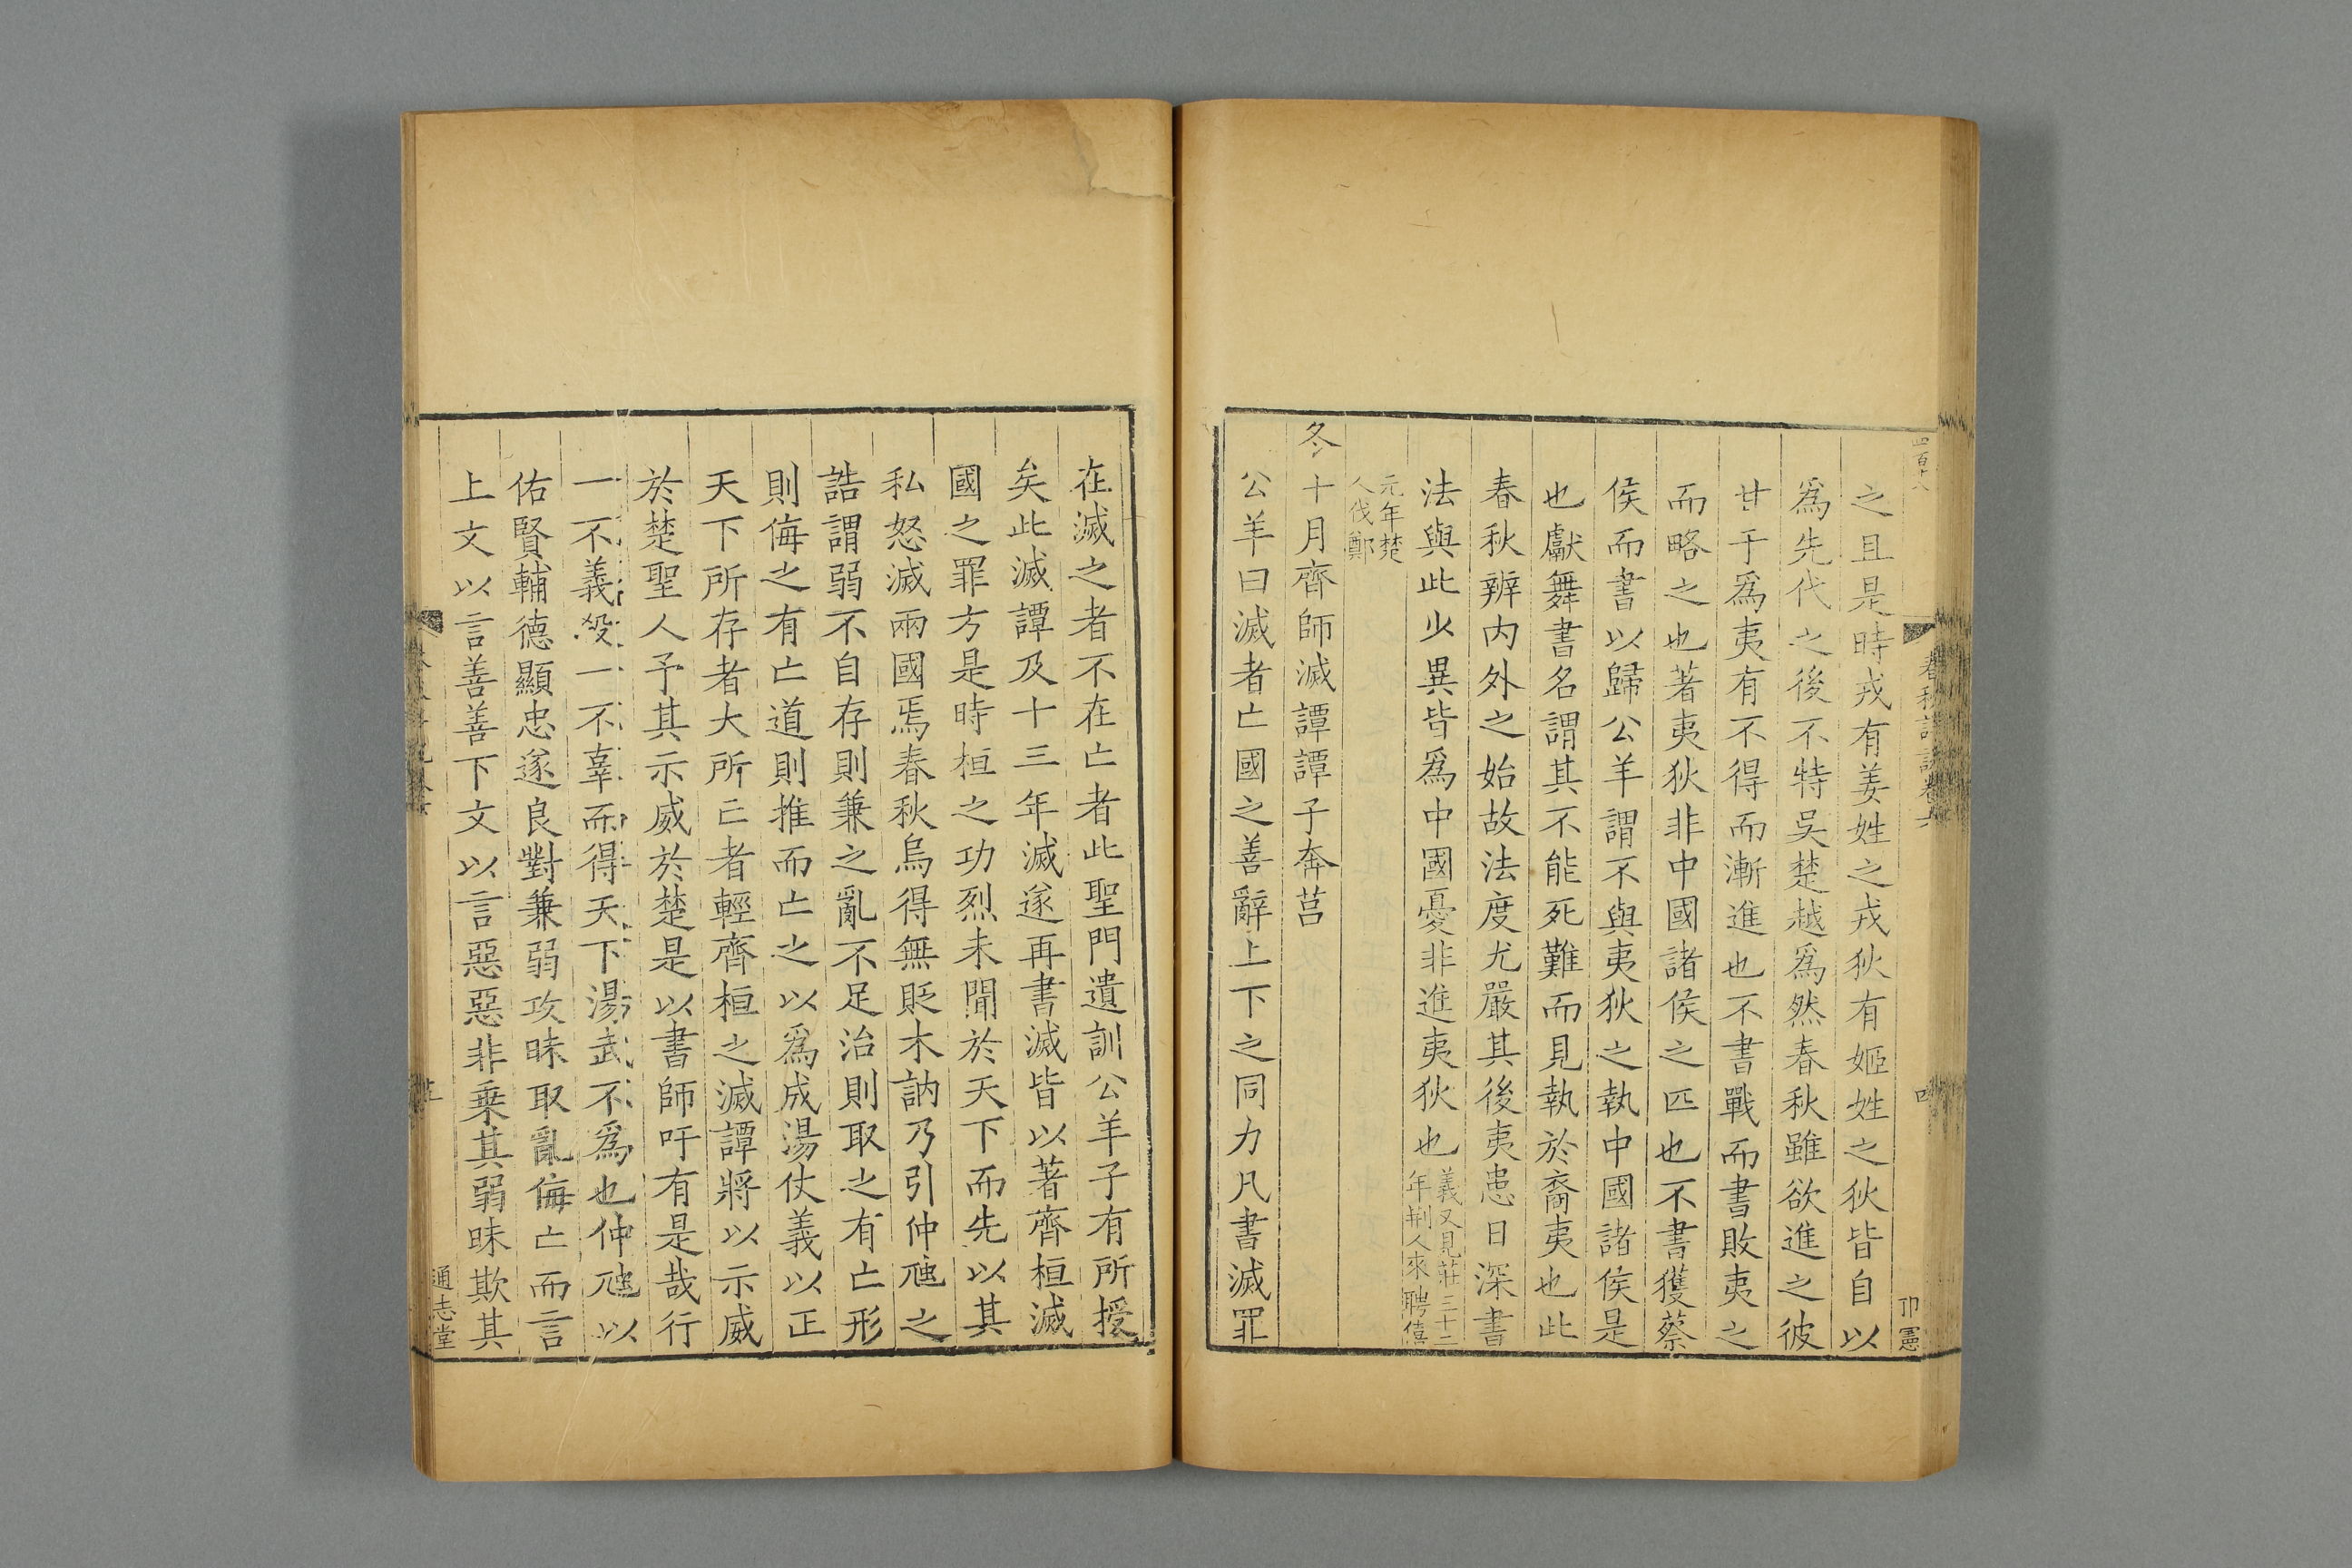 四百十八
春秋詳說卷六
四
卬憲
之且是時戎有姜姓之戎狄有姬姓之狄皆自以
爲先代之後不特吳楚越爲然春秋雖欲進之彼
甘于爲夷有不得而漸進也不書戰而書敗夷之
而略之也著夷狄非中國諸侯之匹也不書獲蔡
侯而書以歸公羊謂不與夷狄之執中國諸侯是
也獻舞書名謂其不能死難而見執於裔夷也此
春秋辨内外之始故法度尤嚴其後夷患日深書
法與此少異皆爲中國憂非進夷狄也義又見莊二十三
年荆人來聘僖
元年楚
人伐鄭
冬十月齊師滅譚譚子奔莒
公羊曰滅者亡國之善辭上下之同力凡書滅罪
在滅之者不在亡者此聖門遺訓公羊子有所授
矣此滅譚及十三年滅遂再書滅皆以著齊桓滅
國之罪方是時桓之功烈未聞於天下而先以其
私怒滅兩國焉春秋烏得無貶木訥乃引仲虺之
誥謂弱不自存則兼之亂不足治則取之有亡形
則侮之有亡道則推而亡之以爲成湯仗義以正
天下所存者大所亡者輕齊桓之滅譚將以示威
於楚聖人予其示威於楚是以書師吁有是哉行
一不義殺一不辜而得天下湯武不爲也仲虺以
佑賢輔德顯忠遂良對兼弱攻昧取亂侮亡而言
上文以言善善下文以言惡惡非乗其弱昧欺其
通志堂